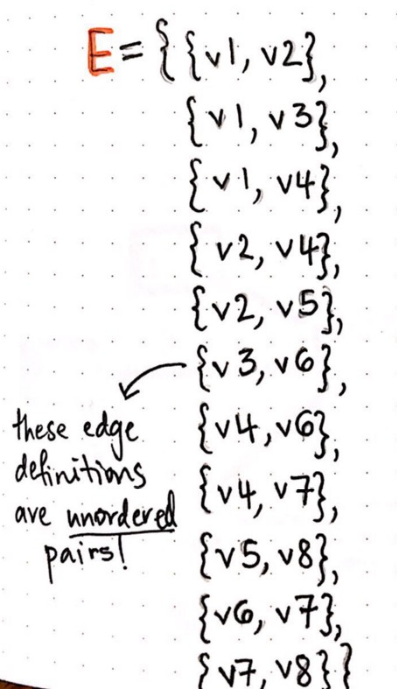 E={{v1, v2},
{v1, v3},
{v1, v4},
{v2, v4},
{v2, v5},
{v3, v6},
{v4, v6},
{v4, v7},
{v5, v8},
{v6, v7},
{v7, v8}}
these edge
definitions
are unordered
pairs!